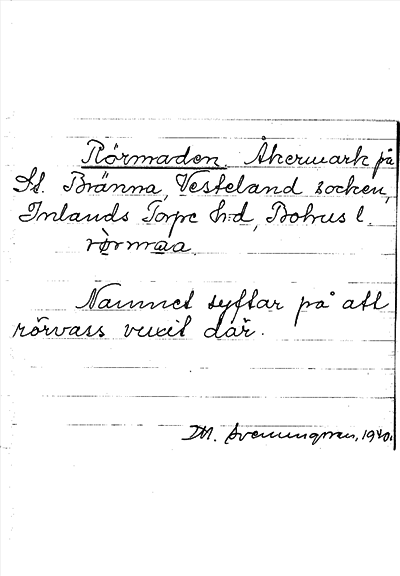 Rörmaden. Åkermark på
St. Bränna, Vesteland socken,
Inlands Torpe h:d, Bohus l.
rörmaa.
Namnet syftar på att
rörvass vuxit där.
M. Svenungsson, 1940.